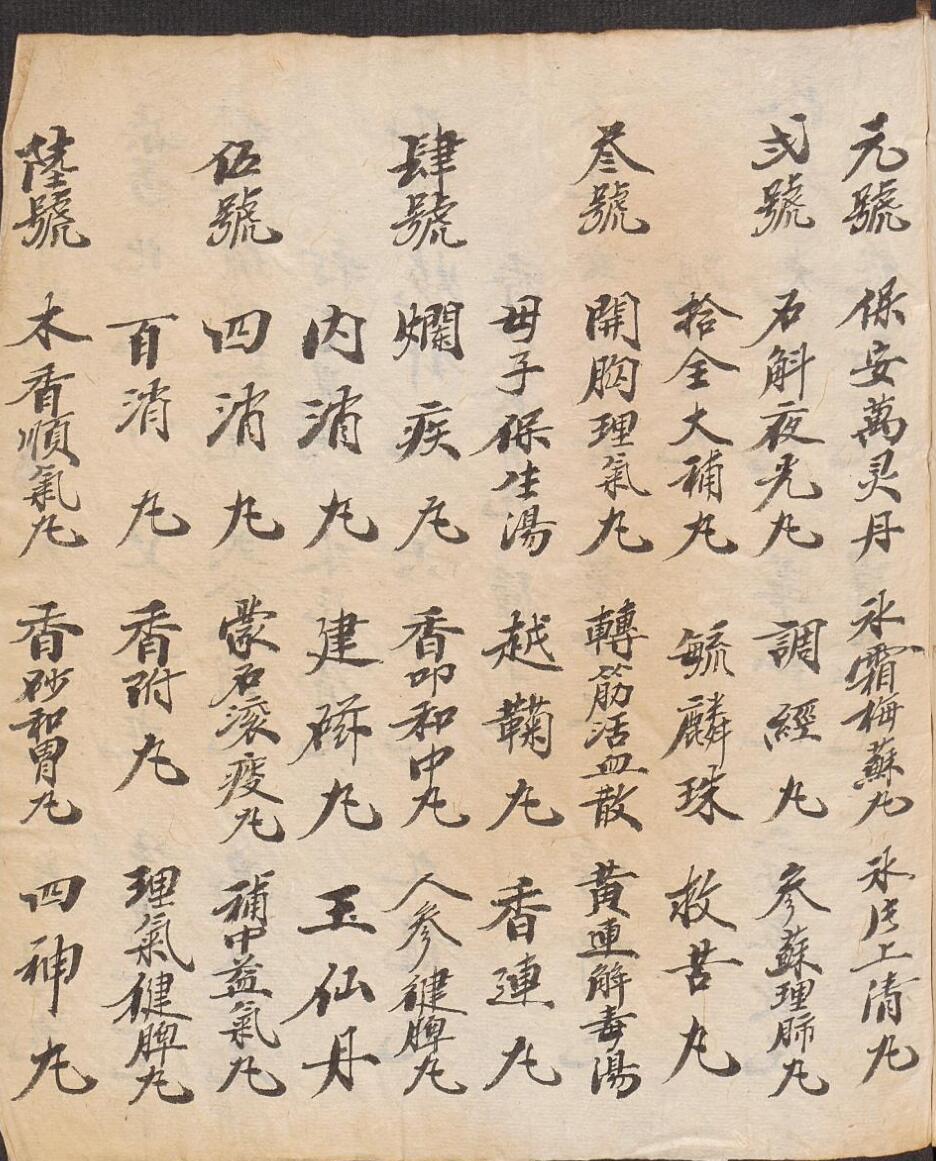 元號 保安萬灵丹 氷霜梅蘇丸 氷片上清丸
弍號 石斛夜光丸 調經丸 參蘇理肺丸
拾全大補丸 毓麟珠 救苦丸
叁號 開胸理氣丸 轉筋活血散 黃連解毒湯
毋子保生湯 越鞠丸 香連丸
肆號 爛疾丸 香叩和中丸 人參健脾丸
內消丸 建磁丸 玉仙丹
伍號 四消丸 蒙石滚痰丸 補中益氣丸
百消丸 香附丸 理氣健脾丸
陸號 木香順氣丸 香砂和胃丸 四神丸